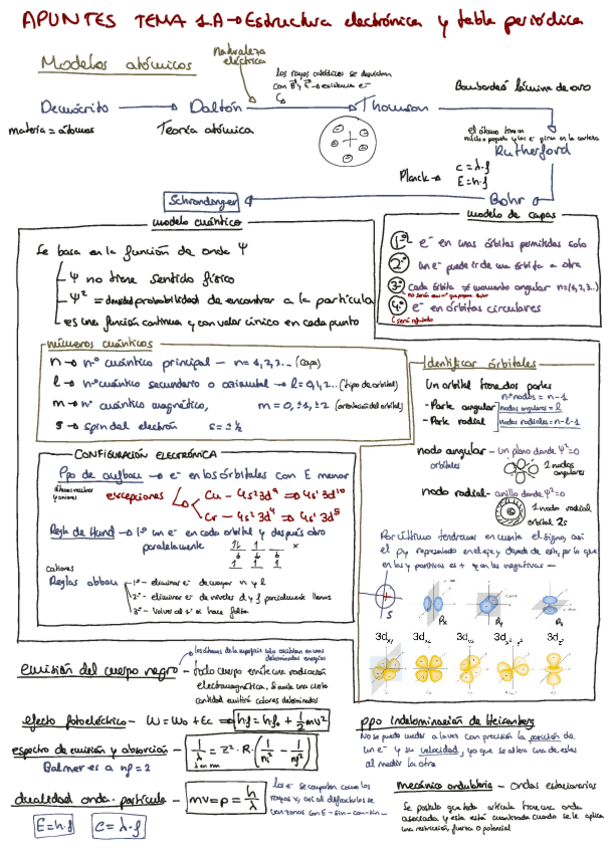 APUNTES TEMA 1.A → Estructura electrónica y tabla periódica
Modelos atómicos
naturaleza
eléctrica
los rayos catódicos se desvían
con B y E → existencia e-
Bombardeó lámina de oro
Demócrito → Dalton → Thomson
materia = átomos
Teoría atómica
el átomo tiene
núcleo pequeño y los e- giran en la corteza
Rutherford
Planck →
c = λ·f
E = h·f
Schrondonger
Bohr
modelo cuántico
Se basa en la función de onda Ψ
Ψ no tiene sentido físico
Ψ² = densidad probabilidad de encontrar a la partícula
es una función continua y con valor único en cada punto
modelo de capas
1º e- en unas órbitas permitidas solo
2º un e- puede ir de una órbita a otra
3º cada órbita ≠ momento angular n=(1,2,3..)
4º e- en órbitas circulares
números cuánticos
n → nº cuántico principal — n = 1, 2, 3... (capa)
l → nº cuántico secundario o azimutal → l = 0, 1, 2... (tipo de orbital)
m → nº cuántico magnético, m = 0, ±1, ±2 (orientación del orbital)
s → spin del electrón s = ± ½
Identificar órbitales
Un orbital tiene dos partes
nº nodos = n-1
- Parte angular nodos angulares = l
- Parte radial nodos radiales = n-l-1
nodo angular - un plano donde Ψ²=0
orbitales
2 nodos
angulares
nodo radial - anillo donde Ψ²=0
1 nodo radial
orbital 2s
Por último tendremos en cuenta el signo, así
el py representado en el eje y depende de este, por lo que
en las y positivas es + y en las negativas -
S
Px
Py
Pz
3dxy 3dxz 3dyz 3dx²-y² 3dz²
CONFIGURACIÓN ELECTRÓNICA
Ppo de aufbau → e- en los órbitales con E menor
átomos neutros
y aniones
excepciones
Cu - 4s² 3d⁹ ⇒ 4s¹ 3d¹⁰
Cr - 4s² 3d⁴ ⇒ 4s¹ 3d⁵
Regla de Hund → 1º un e- en cada orbital y después otro
paralelamente
cationes
Reglas abbau
1º - eliminar e- de mayor n y l
2º - eliminar e- de niveles d y f parcialmente llenos
3º - Volver al 1º si hace falta
los átomos de la superficie sólo oscilaban en unas
determinadas energías
emisión del cuerpo negro - todo cuerpo emite una radiación
electromagnética, si emite una cierta
cantidad emitirá colores determinados
efecto fotoeléctrico - W = W₀ + Ec ⇒ hf = hf₀ + ½mv²
espectro de emisión y absorción - 1/λ = Z²·R·(1/ni² - 1/nf²)
λ en nm
Balmer es a nf = 2
dualidad onda-partícula - mv = p = h/λ
los e- se comportan como los
rayos x, así al difractarlos se
ven zonas con E - sin - con - sin -
E = h·f
c = λ·f
ppo indeterminación de Heisenberg
No se puede medir a la vez con precisión la posición de
un e- y su velocidad, ya que se altera una de estas
al medir la otra
mecánica ondulatoria - ondas estacionarias
Se postula que toda partícula tiene una onda
asociada y esta está cuantizada cuando se le aplica
una restricción, fuerza o potencial